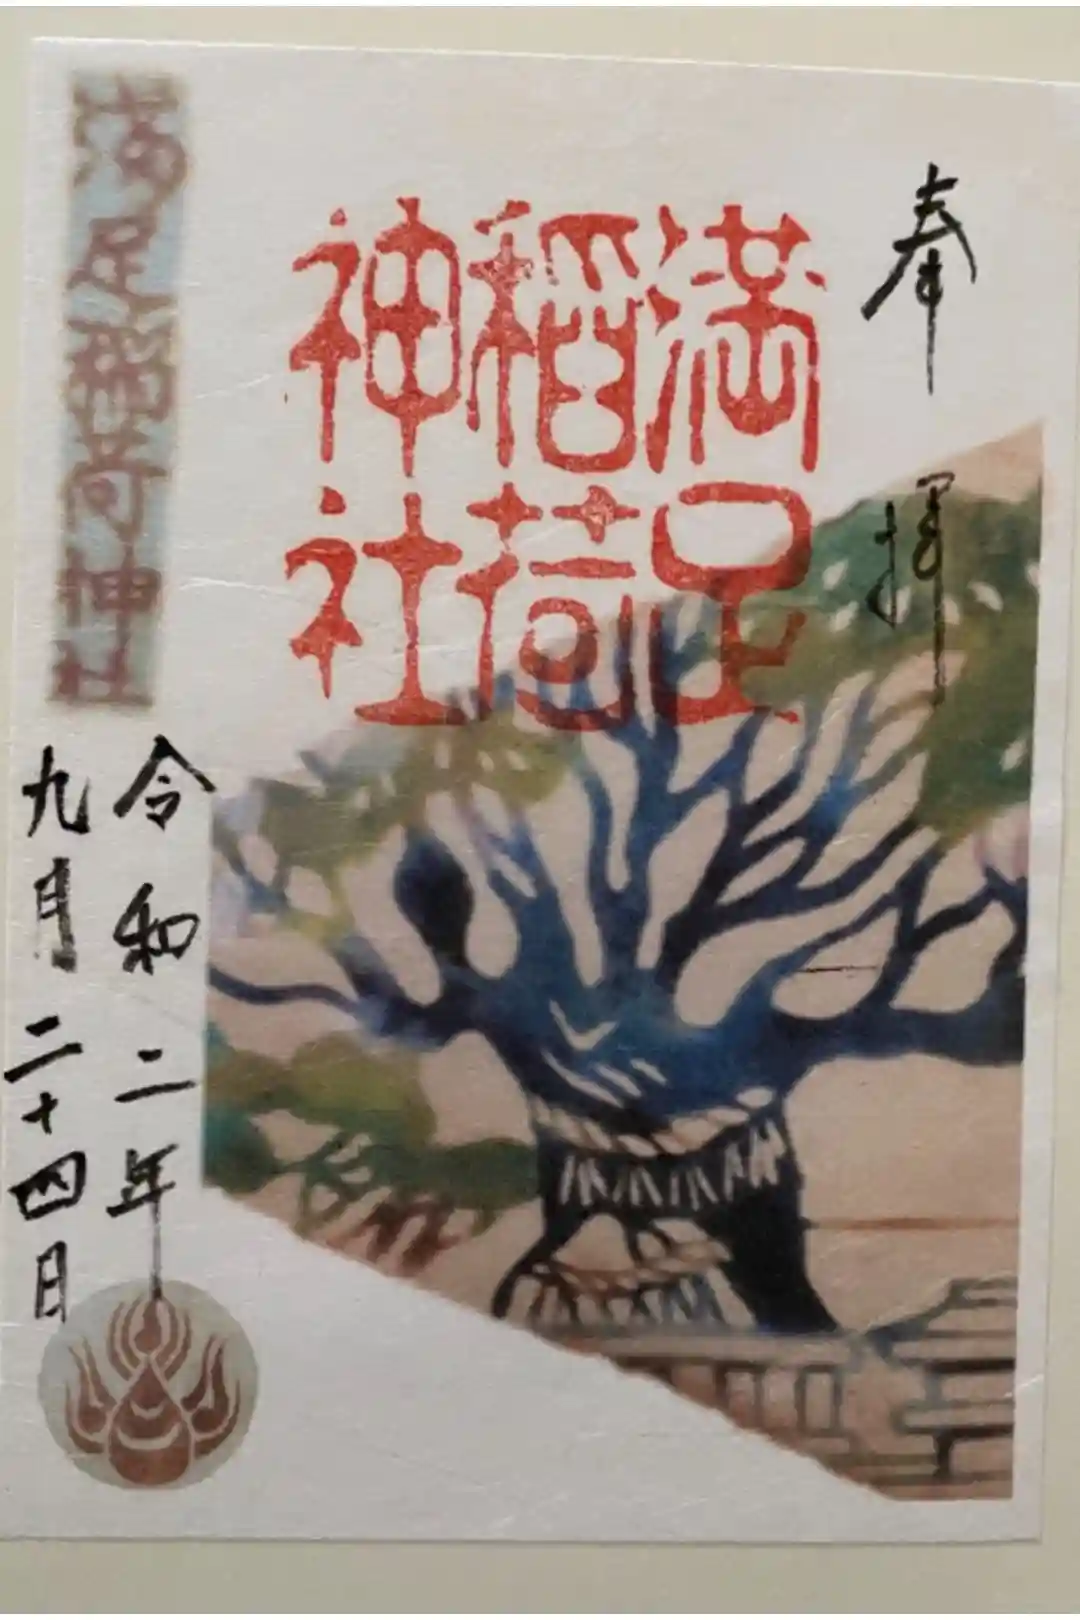 奉拝
満足
稲荷
神社
満足稲荷神社
令和二年
九月二十四日